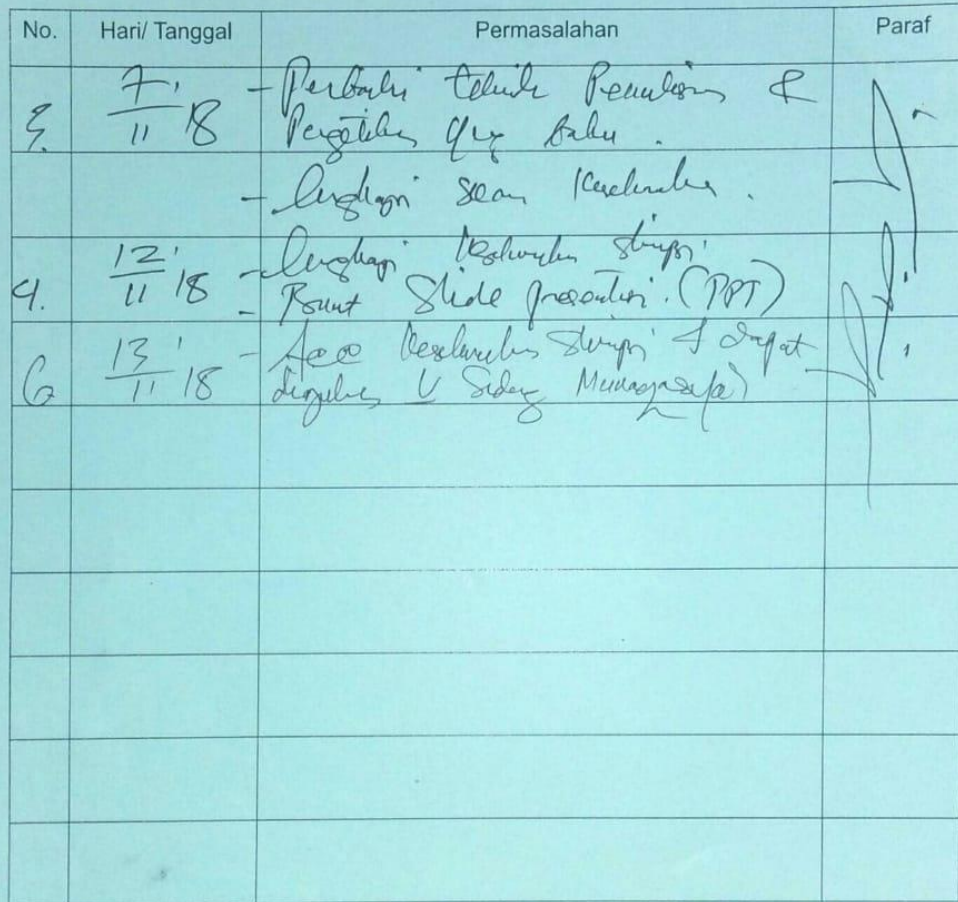 No. Hari/ Tanggal Permasalahan Paraf
7/11 '18 - Perbaiki teknik Penulisan &
Pengetikan yg baku.
- lengkapi secara Keseluruhan.
4. 12/11 '18 - lengkapi Keseluruhan skripsi
- Buat Slide presentasi. (PPT)
13/11 '18 - Acc Keseluruhan Skripsi & dapat
Sidang Munaqasah